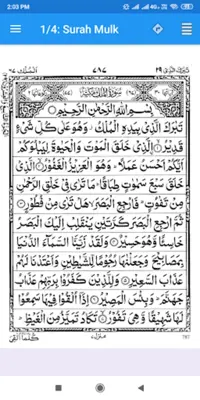 2:03 PM
1/4: Surah Mulk
تبٰرك الذی ٢٩
٧٨٤
الملك ٦٧
بِسْمِ اللّٰهِ الرَّحْمٰنِ الرَّحِيْمِ
تَبٰرَكَ الَّذِيْ بِيَدِهِ الْمُلْكُ وَهُوَ عَلٰى كُلِّ شَيْءٍ
قَدِيْرُۨ الَّذِيْ خَلَقَ الْمَوْتَ وَالْحَيٰوةَ لِيَبْلُوَكُمْ
اَيُّكُمْ اَحْسَنُ عَمَلًا وَهُوَ الْعَزِيْزُ الْغَفُوْرُ الَّذِيْ
خَلَقَ سَبْعَ سَمٰوٰتٍ طِبَاقًا مَا تَرٰى فِيْ خَلْقِ الرَّحْمٰنِ
مِنْ تَفٰوُتٍ فَارْجِعِ الْبَصَرَ هَلْ تَرٰى مِنْ فُطُوْرٍ
ثُمَّ ارْجِعِ الْبَصَرَ كَرَّتَيْنِ يَنْقَلِبْ اِلَيْكَ الْبَصَرُ
خَاسِئًا وَّهُوَ حَسِيْرٌ وَلَقَدْ زَيَّنَّا السَّمَآءَ الدُّنْيَا
بِمَصَابِيْحَ وَجَعَلْنٰهَا رُجُوْمًا لِّلشَّيٰطِيْنِ وَاَعْتَدْنَا لَهُمْ
عَذَابَ السَّعِيْرِ وَلِلَّذِيْنَ كَفَرُوْا بِرَبِّهِمْ عَذَابُ
جَهَنَّمَ وَبِئْسَ الْمَصِيْرُ اِذَآ اُلْقُوْا فِيْهَا سَمِعُوْا
لَهَا شَهِيْقًا وَّهِيَ تَفُوْرُ تَكَادُ تَمَيَّزُ مِنَ الْغَيْظِ
كُلَّمَآ اُلْقِيَ